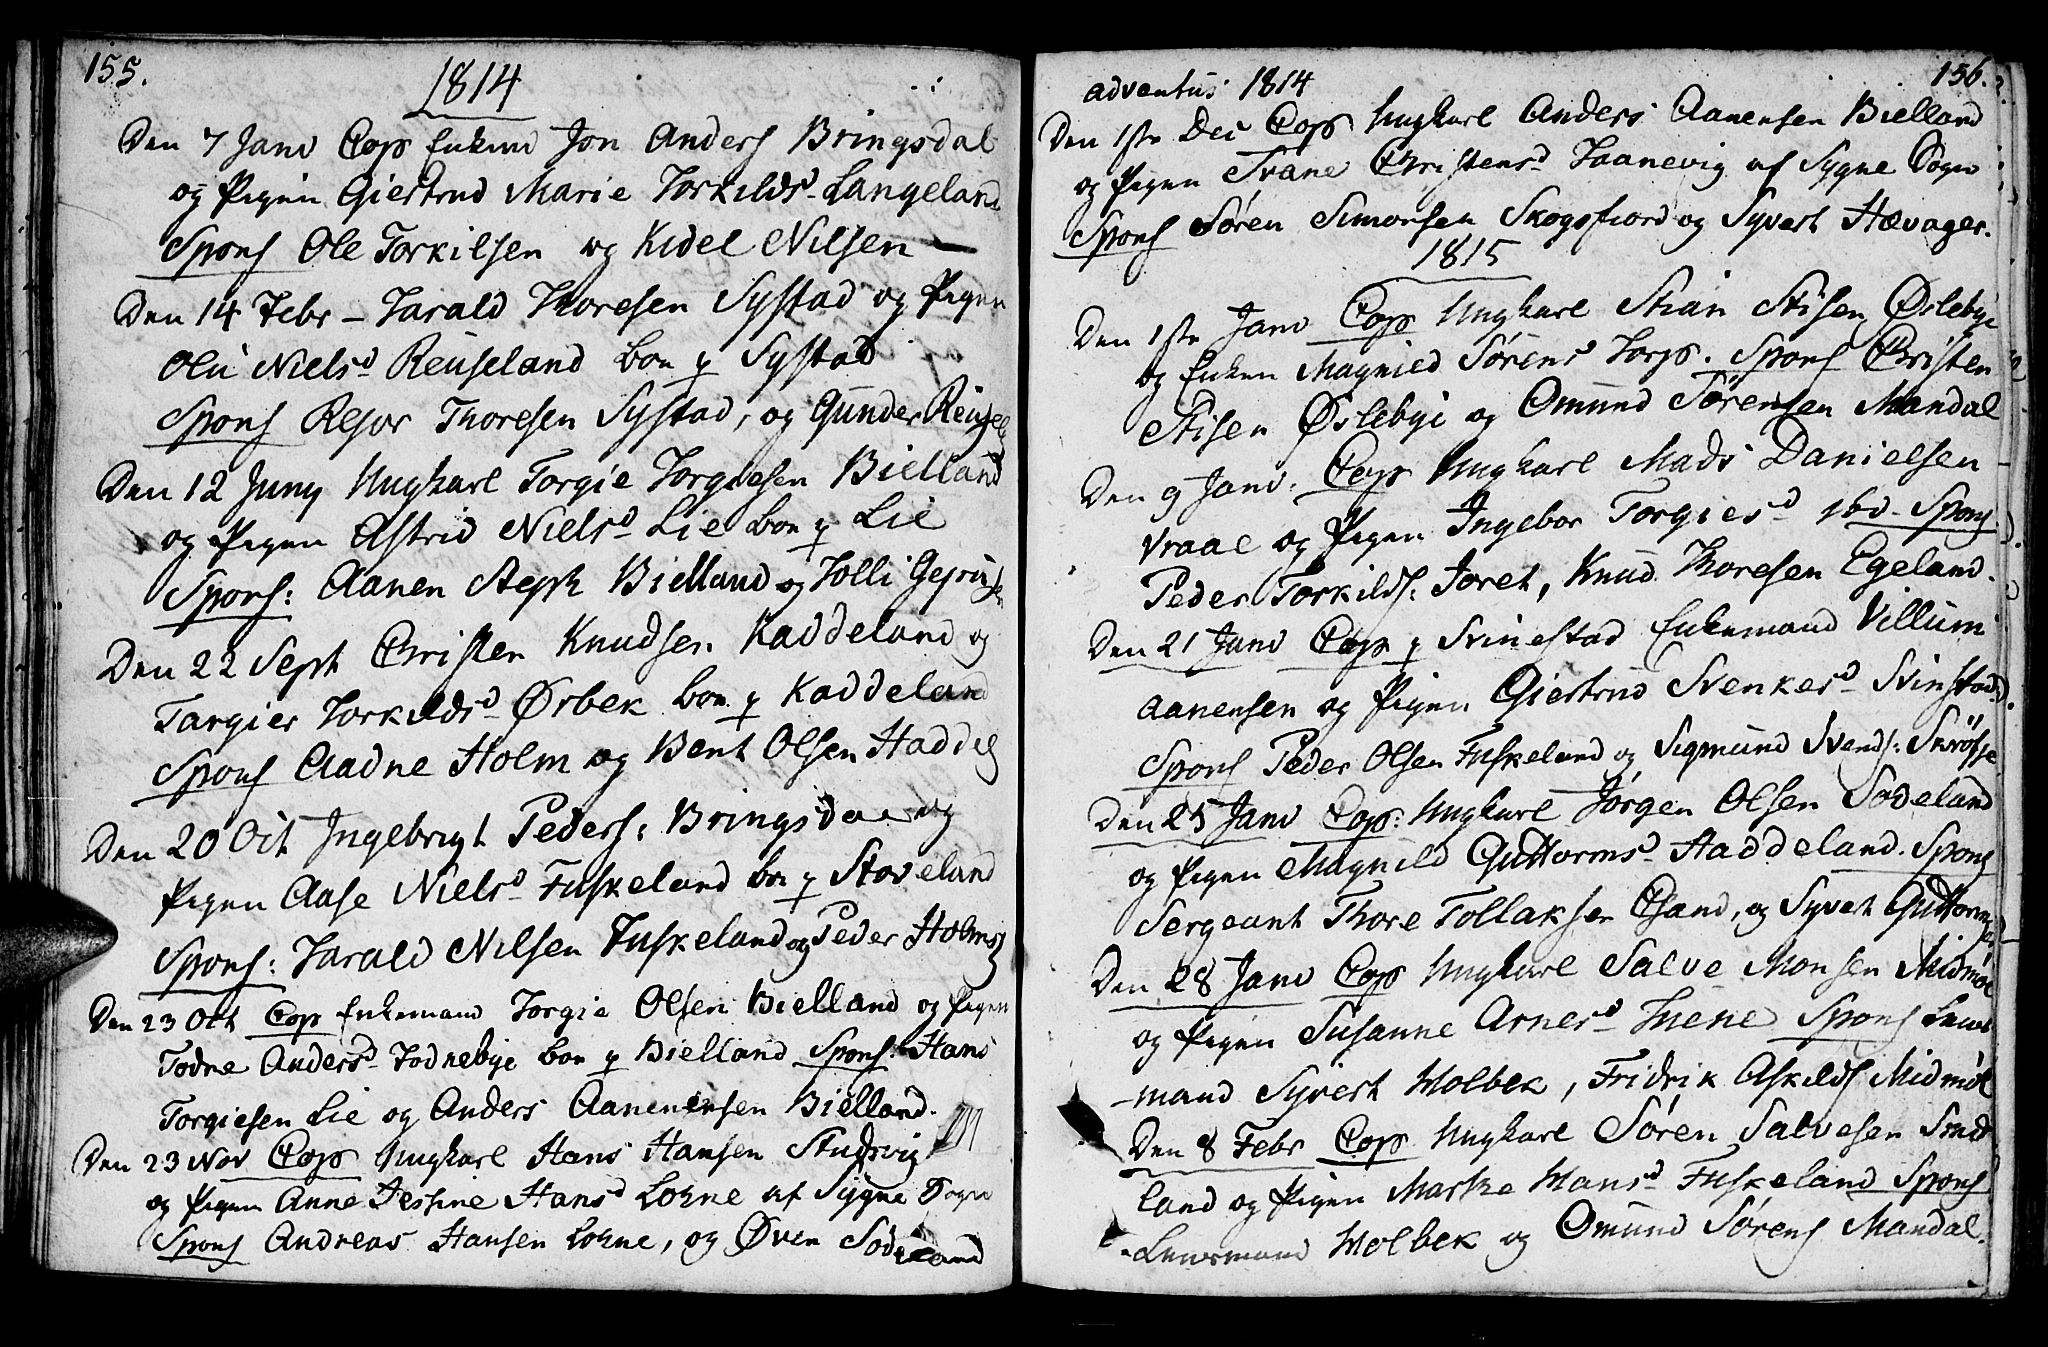 155.
1814
Den 7 Janv Cop Enkem Jon Anders Bringsdal
og Pigen Giertrud Marie Torkilds Langeland
Spons Ole Torkilsen og Kidel Nilsen
Den 14 Febr - Tarald Thoresen Systad og Pigen
Olu Nielsd Reuseland boe p Systad
Spons Resor Thoresen Systad, og Gunder
Den 12 Juny Ungkarl Torgie Torgiesen Bielland
og Pigen Astrid Nielsd Lie boe p Lie
Spons: Aanen Steph Bielland og Tolli
Den 22 Sept Christen Knudsen Kaddeland og
Targier Torkildsd Ørbek boe p Kaddeland
Spons Aadne Holm og Bent Olsen
Den 20 Oct Ingebrigt Peders: Bringsda og
Pigen Aase Nielsd Fuskeland boe p Stoveland
Spons: Tarald Nilsen Fuskeland og Peder Holms
Den 23 Oct Cop Enkemand Torgie Olsen Bielland og Pigen
Todne Andersd Todnebye boe p Bielland Spons: Hans
Torgiesen Lie og Anders Aanenensen Bielland.
Den 23 Nov Cop Ungkarl Hans Hansen Studevig
og Pigen Anne Jessine Hansd Lohne af Sygne Sogn
Spons Andreas Hansen Lohne, og Øven Sodeland
156.
adventus 1814
Den 1ste Dec Cop Ungkarl Anders Aanensen Bielland
og Pigen Tvane Christensd Taanevig af Sygne Sogn
Spons Søren Simonsen Skogsfiord og Syvert Hævager.
1815
Den 1ste Janv Cop Ungkarl Stian Stisen Øslebye
og Enken Magnild Sørens Torp. Spons Christen
Stisen Øslebye og Omund Sørensen Mandal
Den 9 Janv. Cop Ungkarl Mads Danielsen
Vraal og Pigen Ingebor Torgiesd ibd. Spons
Peder Torkilds: Joret, Knud Thoresen Egeland.
Den 21 Janv Cop p Svinestad Enkemand Villum
Aanensen og Pigen Giertrud Svenkesd Svinstad.
Spons Peder Olsen Fuskeland og Sigmund Svends:
Den 25 Janv Cop: Ungkarl Jørgen Olsen Sodeland
og Pigen Magnild Guttormsd Haddeland. Spons
Sergeant Thore Tollaksen, og Syvert Guttormsen
Den 28 Janv Cop Ungkarl Salve Monsen Midmøl
og Pigen Susanne Arnesd Tuene Spons Lens
-mand Syvert Holbek, Fridrik Askilds Midmøl
Den 8 Febr Cop Ungkarl Søren Salvesen Smed
land og Pigen Marthe Hansd Fuskeland Spons
Lensmand Holbek og Omund Sørens Mandal.